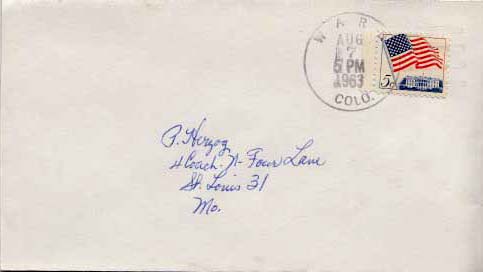 WARD
AUG
7
5 PM
1963
COLO.
5¢
P. Herzog
4 Coach-N-Four Lane
St. Louis 31
Mo.